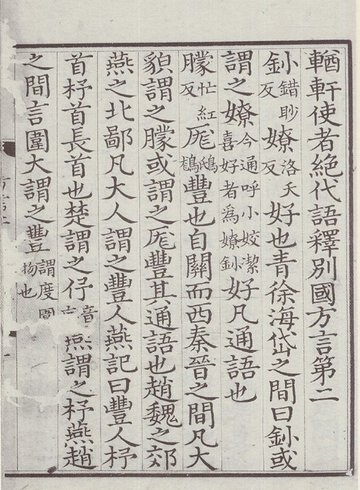 輶軒使者絶代語釋別國方言第二
釥錯眇反嫽洛夭反好也青徐海岱之間曰釥或
謂之嫽今通呼小姣潔喜好者為嫽釥好凡通語也
朦忙紅反厖鴟鵂豐也自關而西秦晉之間凡大
貌謂之朦或謂之厖豐其通語也趙魏之郊
燕之北鄙凡大人謂之豐人燕記曰豐人杼
首杼首長首也楚謂之伃音燕謂之杼燕趙
之間言圍大謂之豐謂度圍物也